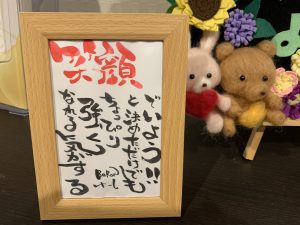 笑顔
でいよう!!
と決めただけでも
ちょっぴり
強く
なれる気がする